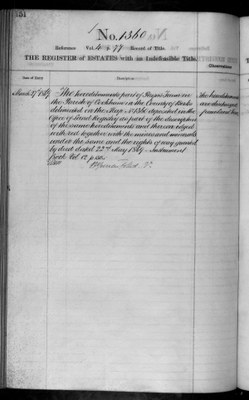 551
No. 1360
Reference Vol. 4 77 Record of Title.
THE REGISTER OF ESTATES with an Indefeasible Title.
Date of Entry
Description
Observations
March 17 1869
The hereditaments part of Farm in
the Parish of Cookham in the County of Berks
delineated on the Map No 1360 deposited in the
Office of Land Registry as part of the description
of the same hereditaments and thereon edged
with red together with the mines and minerals
under the same and the rights of way granted
by deed dated 22nd May 1869 Instrument
Book Vol. p.
The hereditaments
are discharged
from Land Tax